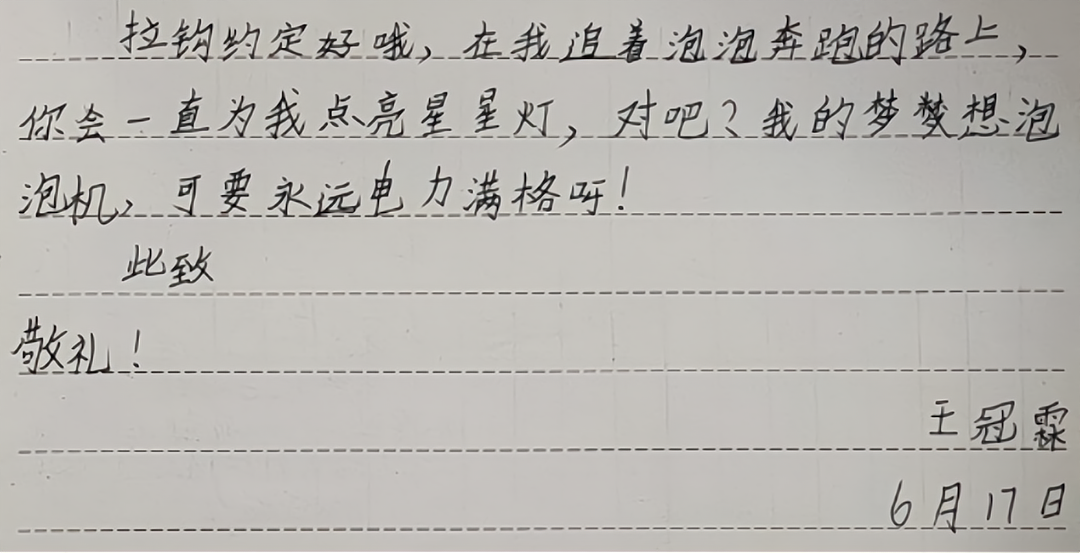 拉钩约定好哦，在我追着泡泡奔跑的路上，
你会一直为我点亮星星灯，对吧？我的梦梦想泡
泡机，可要永远电力满格呀！
此致
敬礼！
王冠霖
6月17日